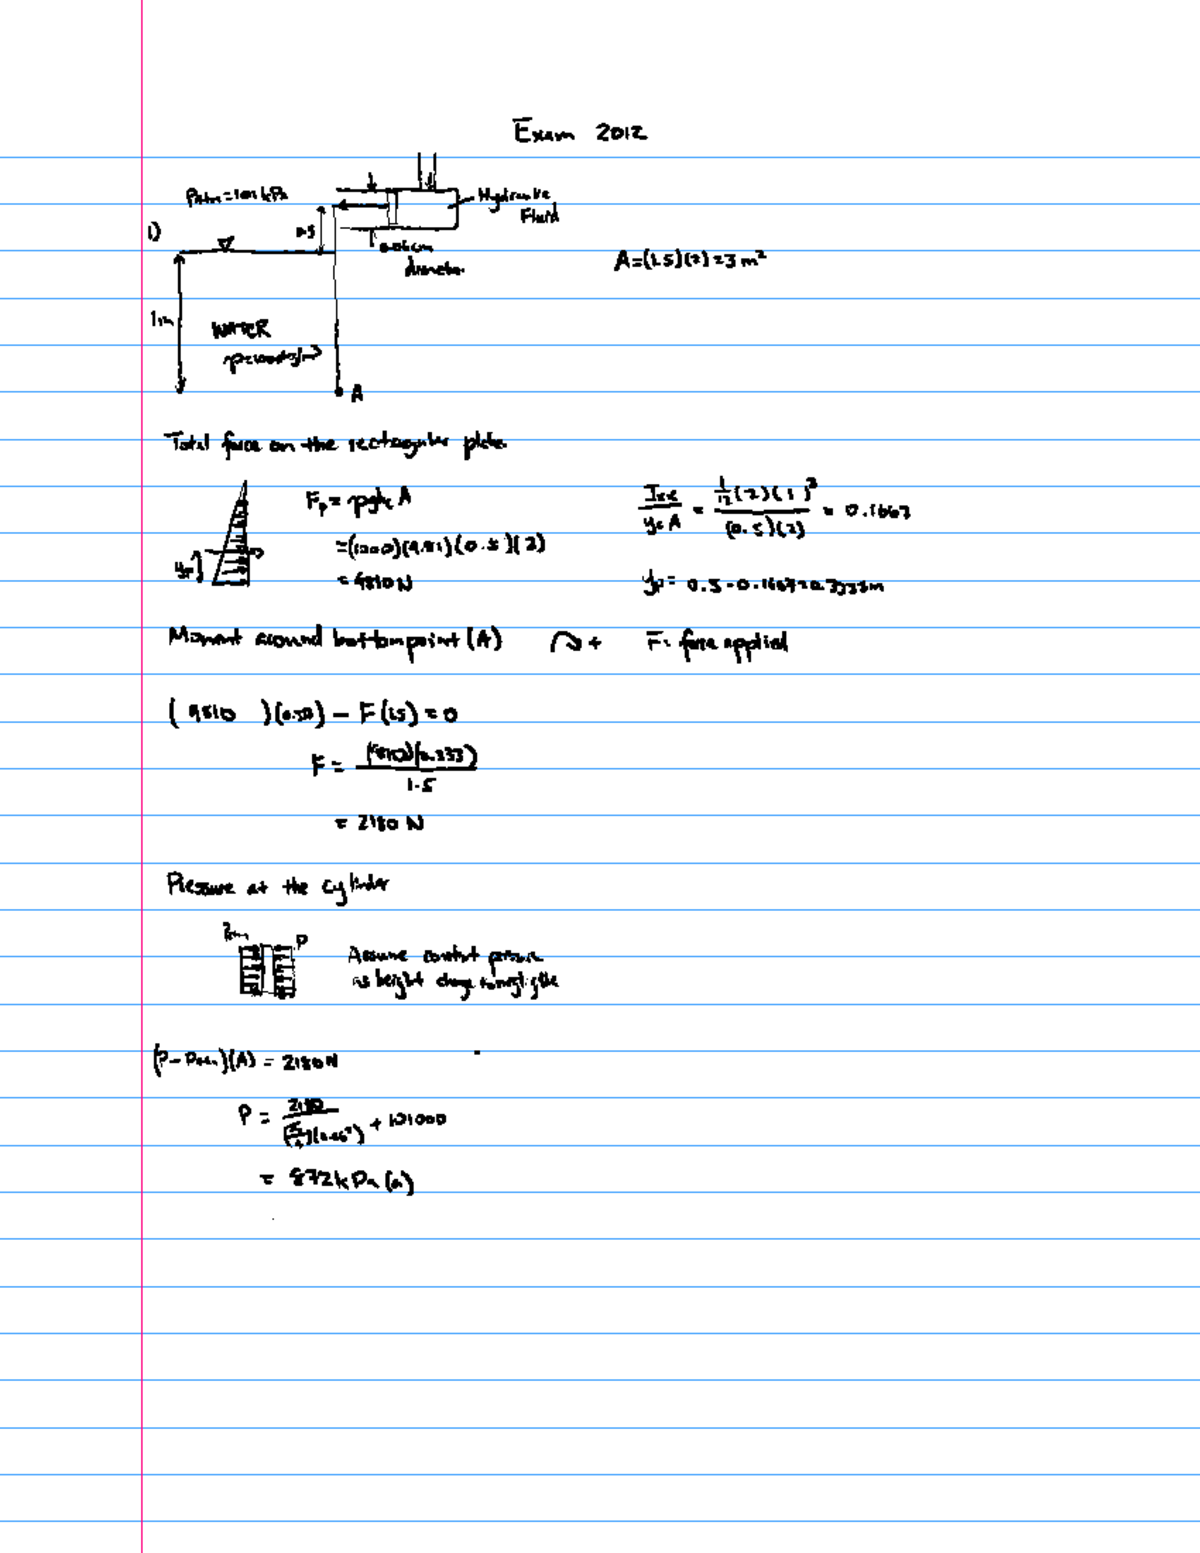 Exam 2012
Patm = 101 kPa
Hydraulic
Fluid
1)
0.5
0.06cm
diameter
A=(1.5)(2)=3 m²
1m
WATER
ρ=1000kg/m³
A
Total force on the rectangular plate
Fp = ρghc A
=(1000)(9.81)(0.5)(2)
= 9810 N
Ixx / yc A = 1/12 (2)(1)³ / (0.5)(2) = 0.1667
yp
yp = 0.5-0.1667=0.3333m
Moment around bottom point (A) + F= force applied
(9810 )(0.33) - F(1.5) = 0
F = (9810)(0.333) / 1.5
= 2180 N
Pressure at the cylinder
Patm P
Assume constant pressure
as height change is negligible
(P-Patm)(A) = 2180N
P = 2180 / (π/4)(0.06²) + 101000
= 872kPa (a)